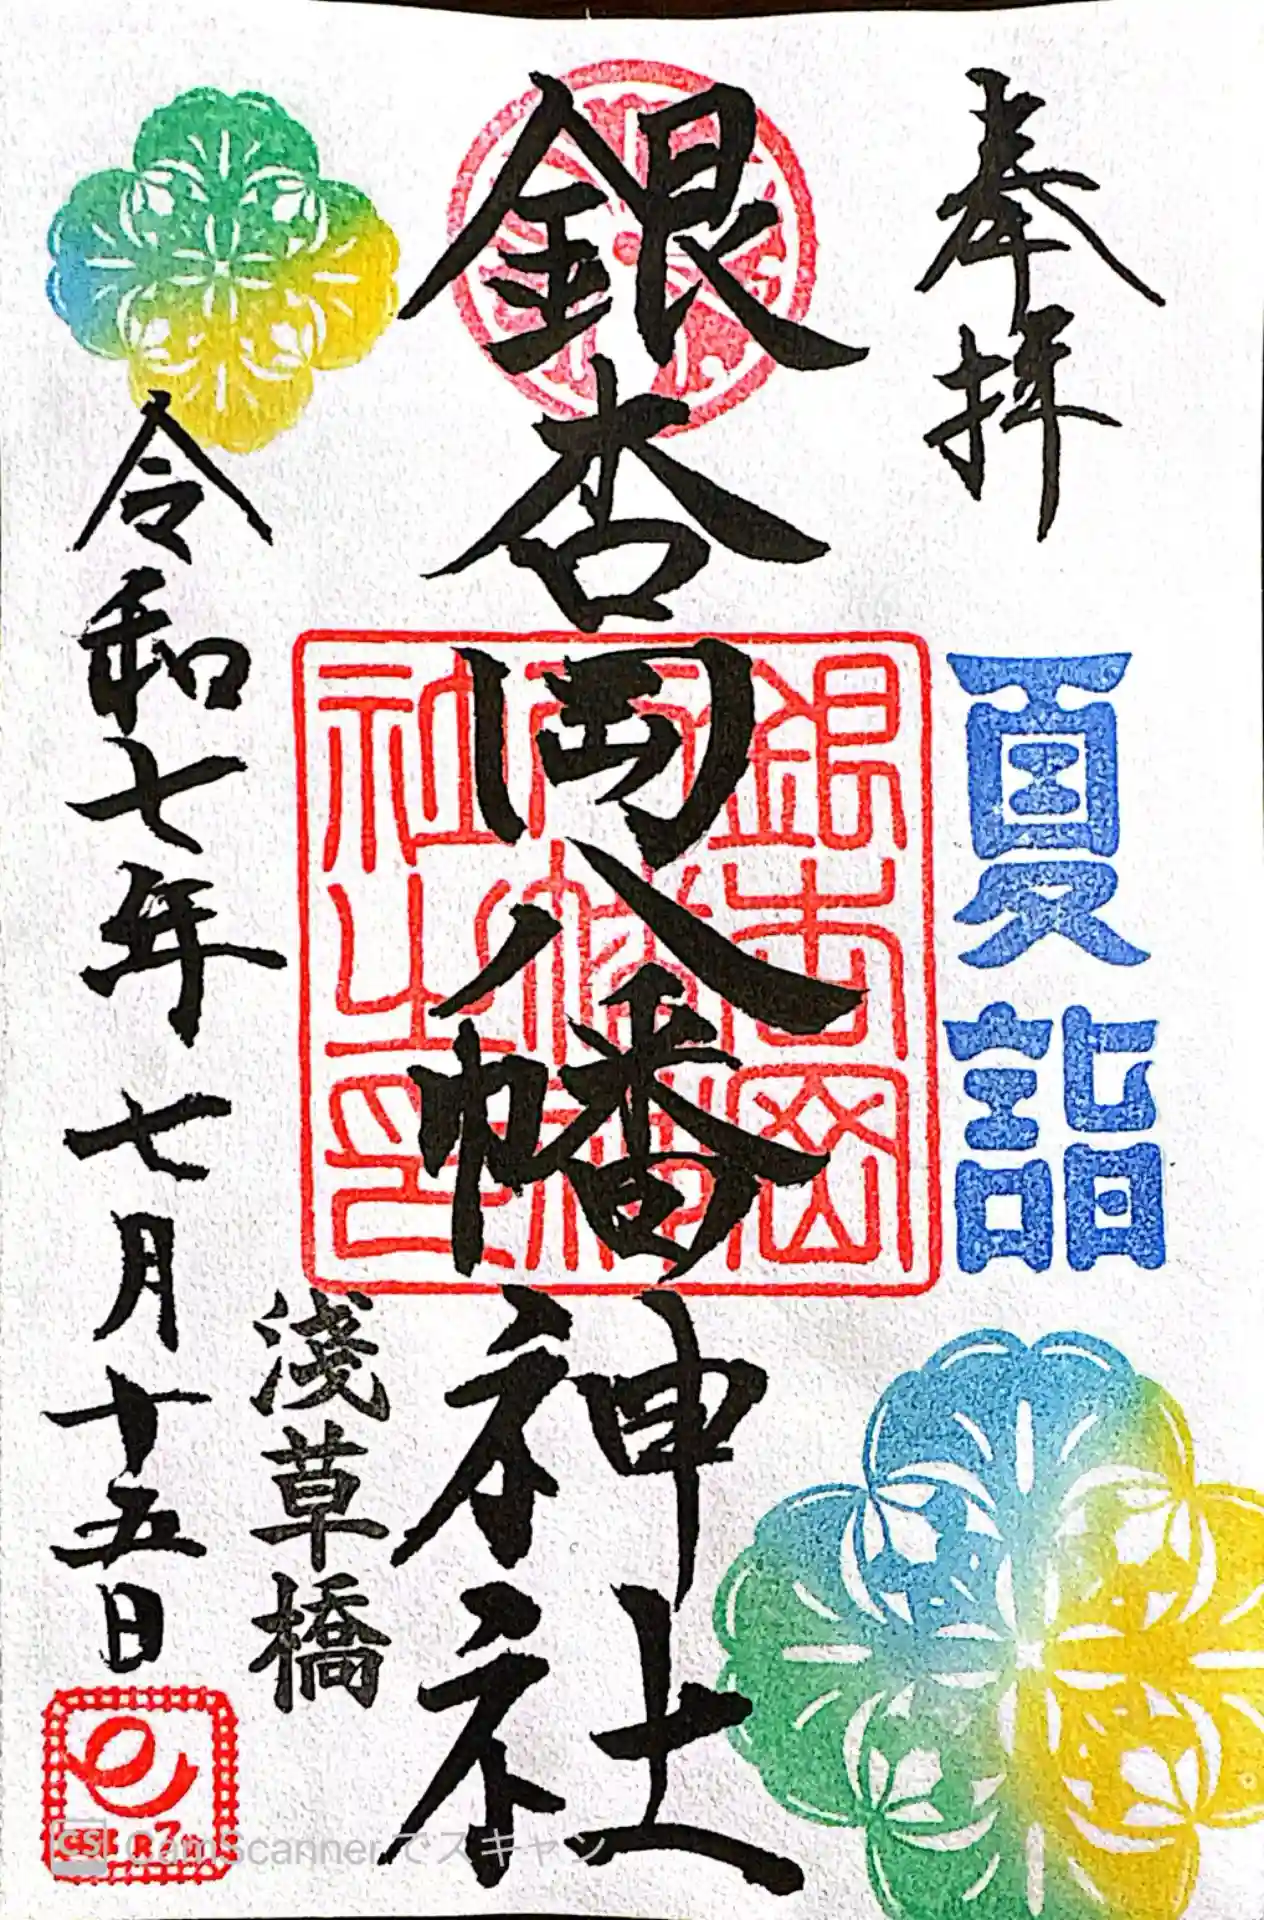 奉拝
夏詣
銀杏岡八幡神社
銀杏岡
八幡神
社之印
淺草橋
令和七年七月十五日
R7
CS CamScannerでスキャン